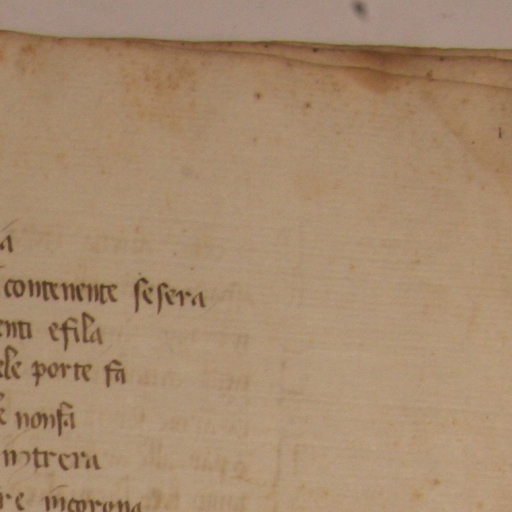 a
contenente sesera
enti efila
ele porte fa
e nonfa
intrera
re incorona